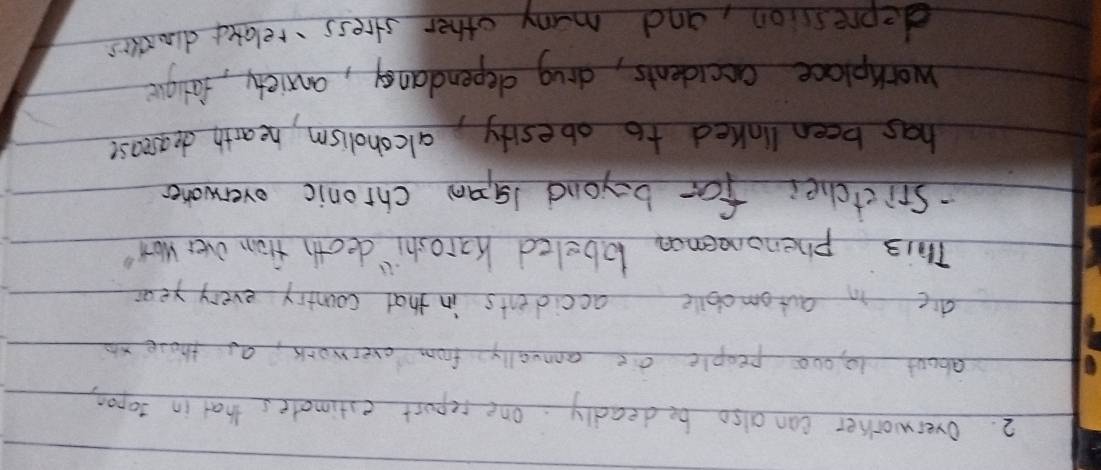 2. Overworker can also be deadly. One report estimates that in Japan,
about 10,000 people die annually from overwork, as those who
die in automobile accidents in that country every year
This phenonaemon labeled Karoshi "death from over work"
- Stretches far beyond Japan chronic overworker
has been linked to obesity, alcoholism, hearth desease
workplace accidents, drug dependancy, anxiety, fatigue
depression, and many other stress-related disorders.